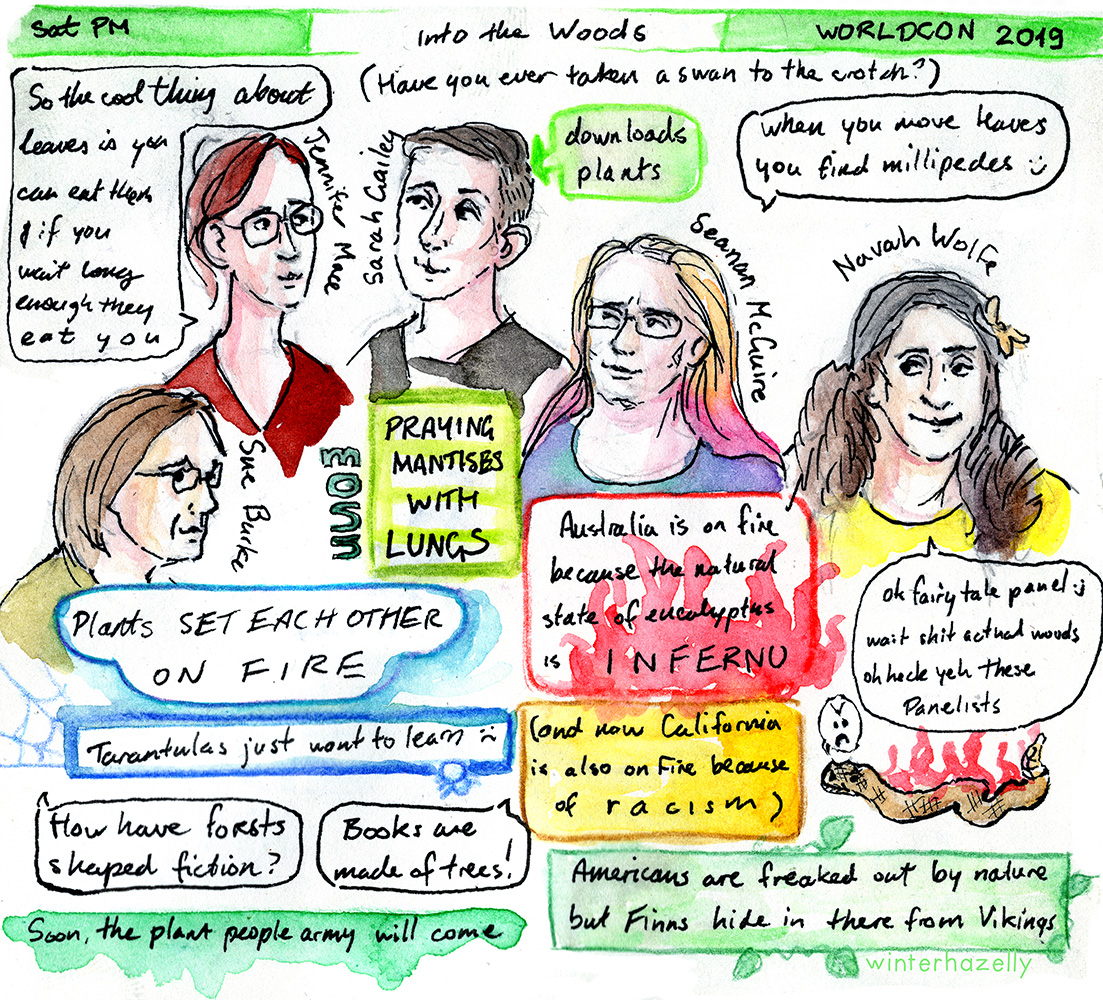 Sat PM
Into the Woods
WORLDCON 2019
(Have you ever taken a swan to the crotch?)
So the cool thing about
leaves is you
can eat them
& if you
wait long
enough they
eat you
Jennifer Mace
Sarah Gailey
downloads
plants
when you move leaves
you find millipedes :)
Seanan McGuire
Navah Wolfe
Sue Burke
PRAYING
MANTISES
WITH
LUNGS
Australia is on fire
because the natural
state of eucalyptus
is INFERNO
oh fairy tale panel :)
wait shit actual woods
oh heck yeh these
Panelists
Plants SET EACH OTHER
ON FIRE
Tarantulas just want to learn :)
(and now California
is also on Fire because
of racism)
How have forsts
shaped fiction?
Books are
made of trees!
Americans are freaked out by nature
but Finns hide in there from Vikings
Soon, the plant people army will come
winterhazelly